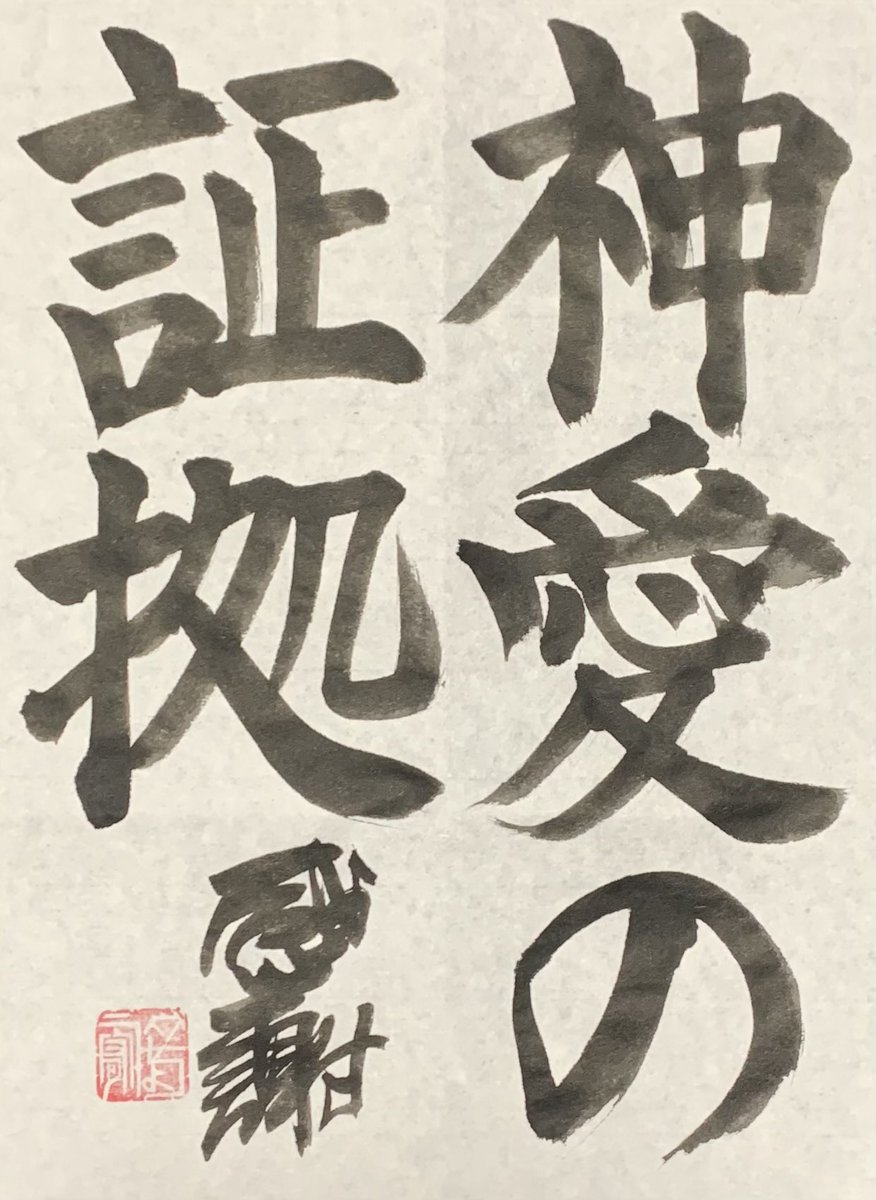 神愛の
証拠
感謝